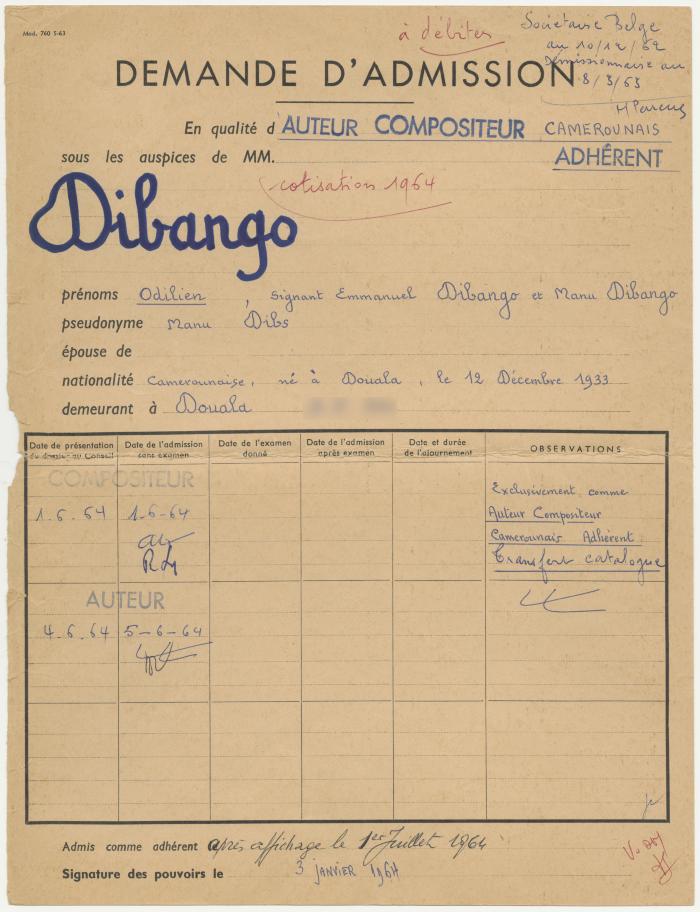 Mod. 760 5-63
à débiter
Sociétaire Belge
au 10/12/62
Démissionnaire au
8/3/63
DEMANDE D'ADMISSION
En qualité d AUTEUR COMPOSITEUR CAMEROUNAIS
sous les auspices de MM. ADHÉRENT
cotisation 1964
Dibango
prénoms Odilien, signant Emmanuel Dibango et Manu Dibango
pseudonyme Manu Dibs
épouse de
nationalité Camerounaise, né à Douala, le 12 Décembre 1933
demeurant à Douala
Date de présentation du dossier au Conseil
Date de l'admission sans examen
Date de l'examen donné
Date de l'admission après examen
Date et durée de l'ajournement
OBSERVATIONS
COMPOSITEUR
1.6.64 1-6-64
Exclusivement comme
Auteur Compositeur
Camerounais Adhérent
Transfert catalogue
AUTEUR
4.6.64 5-6-64
Admis comme adhérent après affichage le 1er Juillet 1964
Signature des pouvoirs le 3 JANVIER 1964